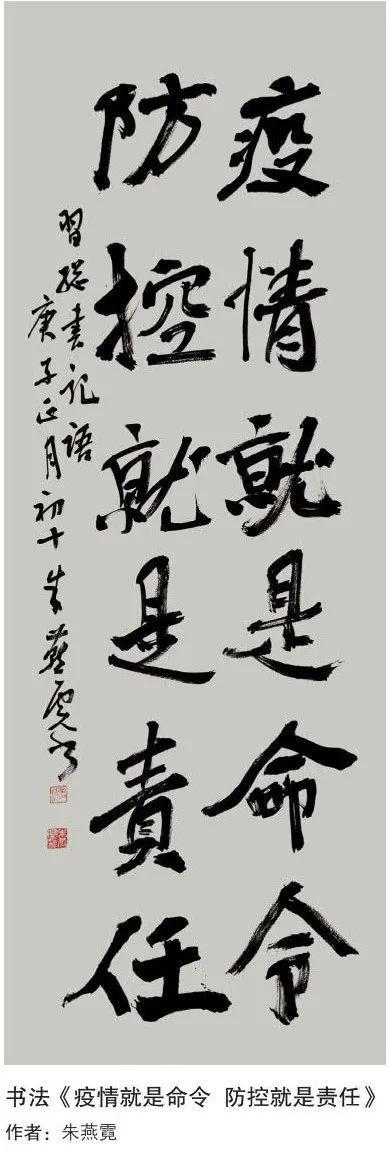 疫情就是命令
防控就是责任
習総书记语
庚子正月初十朱燕霓书
书法《疫情就是命令 防控就是责任》
作者：朱燕霓